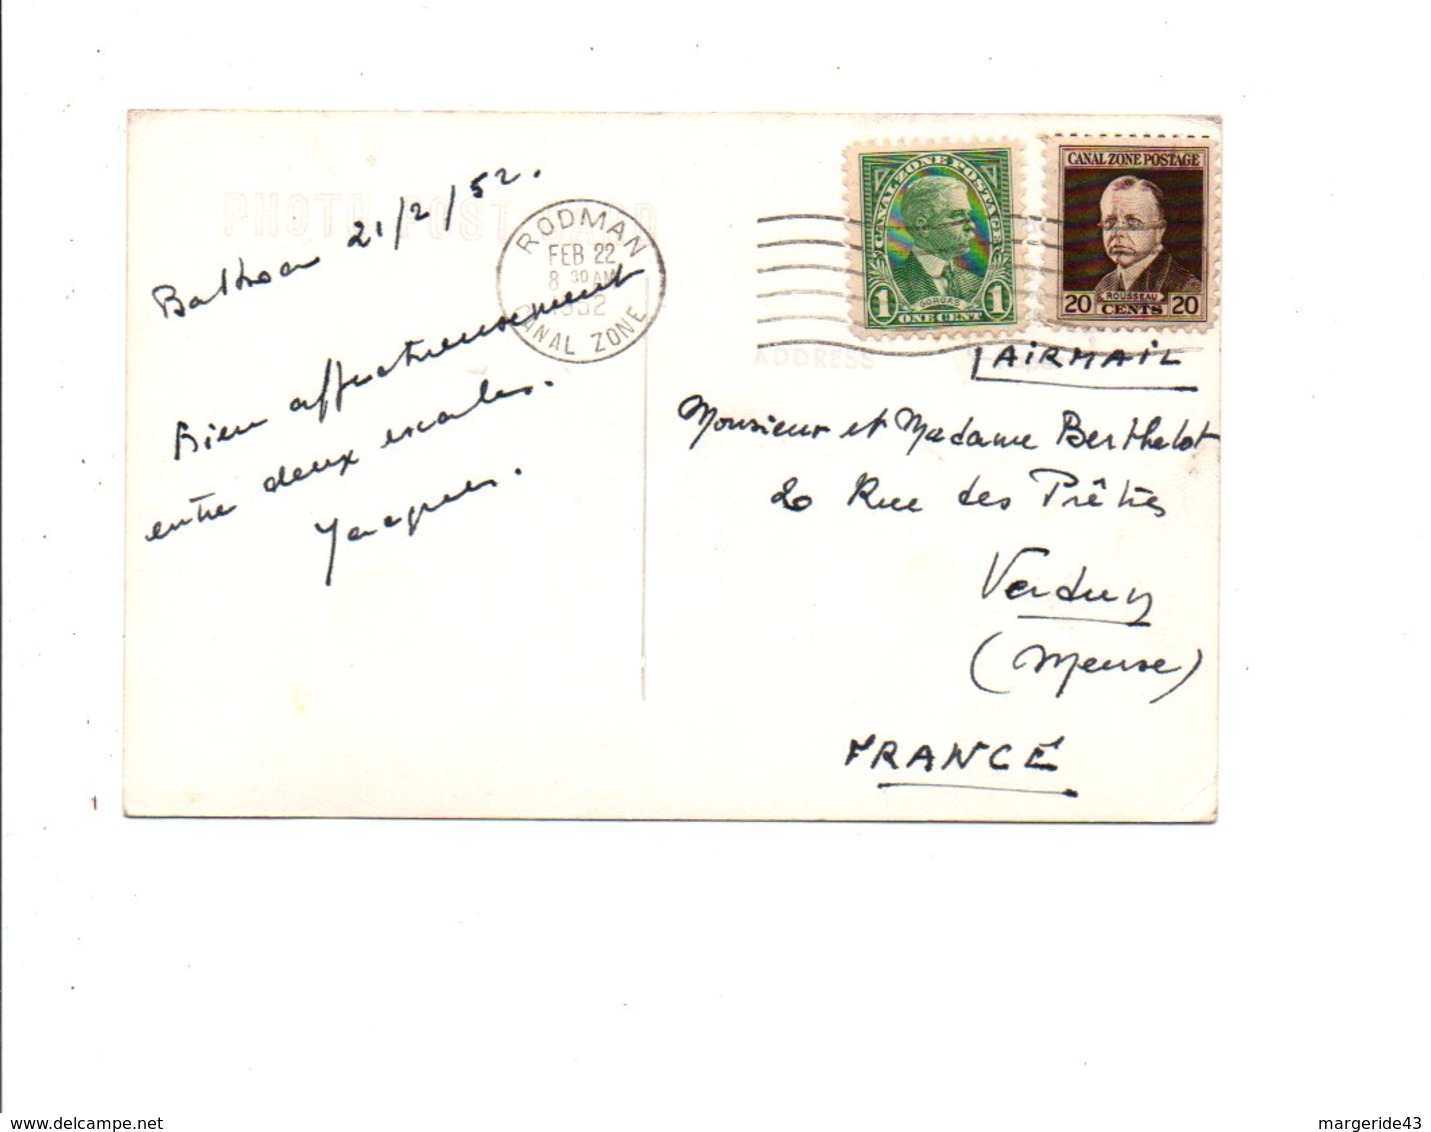 PHOTO POST CARD
Balboa 21/2/52.
Bien affectueusement
entre deux escales.
Jacques.
RODMAN
FEB 22
8 30 AM
1952
CANAL ZONE
CANAL ZONE POSTAGE
GORGAS
1 ONE CENT 1
CANAL ZONE POSTAGE
ROUSSEAU
20 CENTS 20
ADDRESS
AIRMAIL
Monsieur et Madame Berthelot
20 Rue des Prêtres
Verdun
(Meuse)
FRANCE
1
www.delcampe.net
margeride43